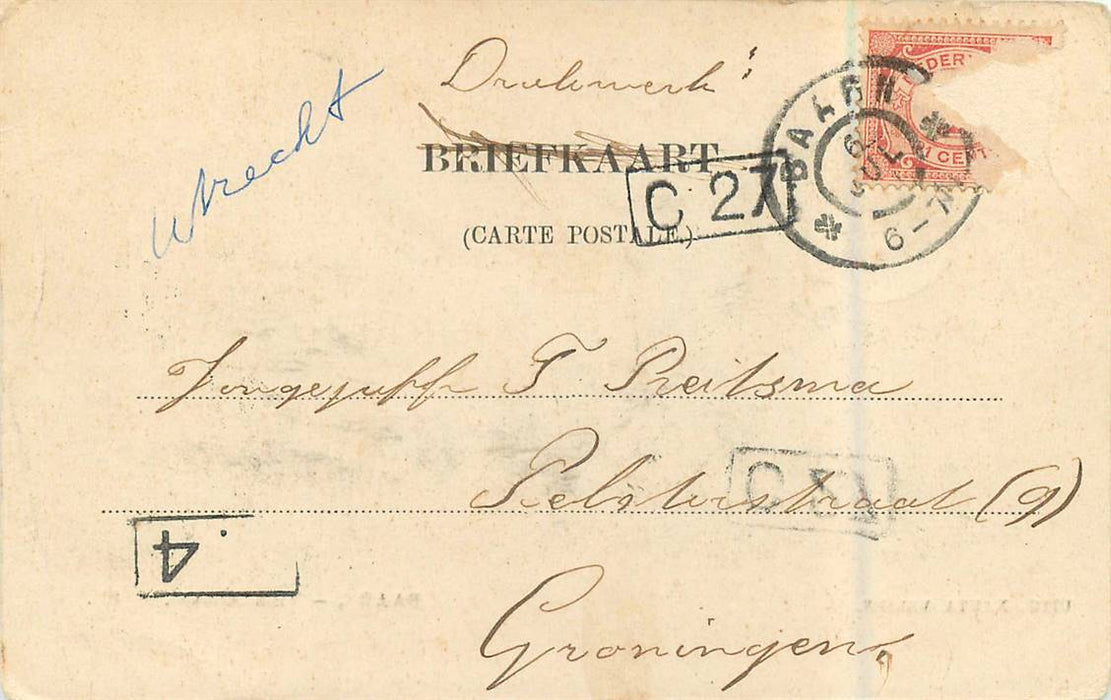 Drukwerk:
Utrecht
BRIEFKAART
(CARTE POSTALE.)
C 27
BAARN
6 JUL
6-7N
NEDER
1 CENT
Jongejuffr T. Preitsma
Pelsterstraat (9)
4
Groningen,